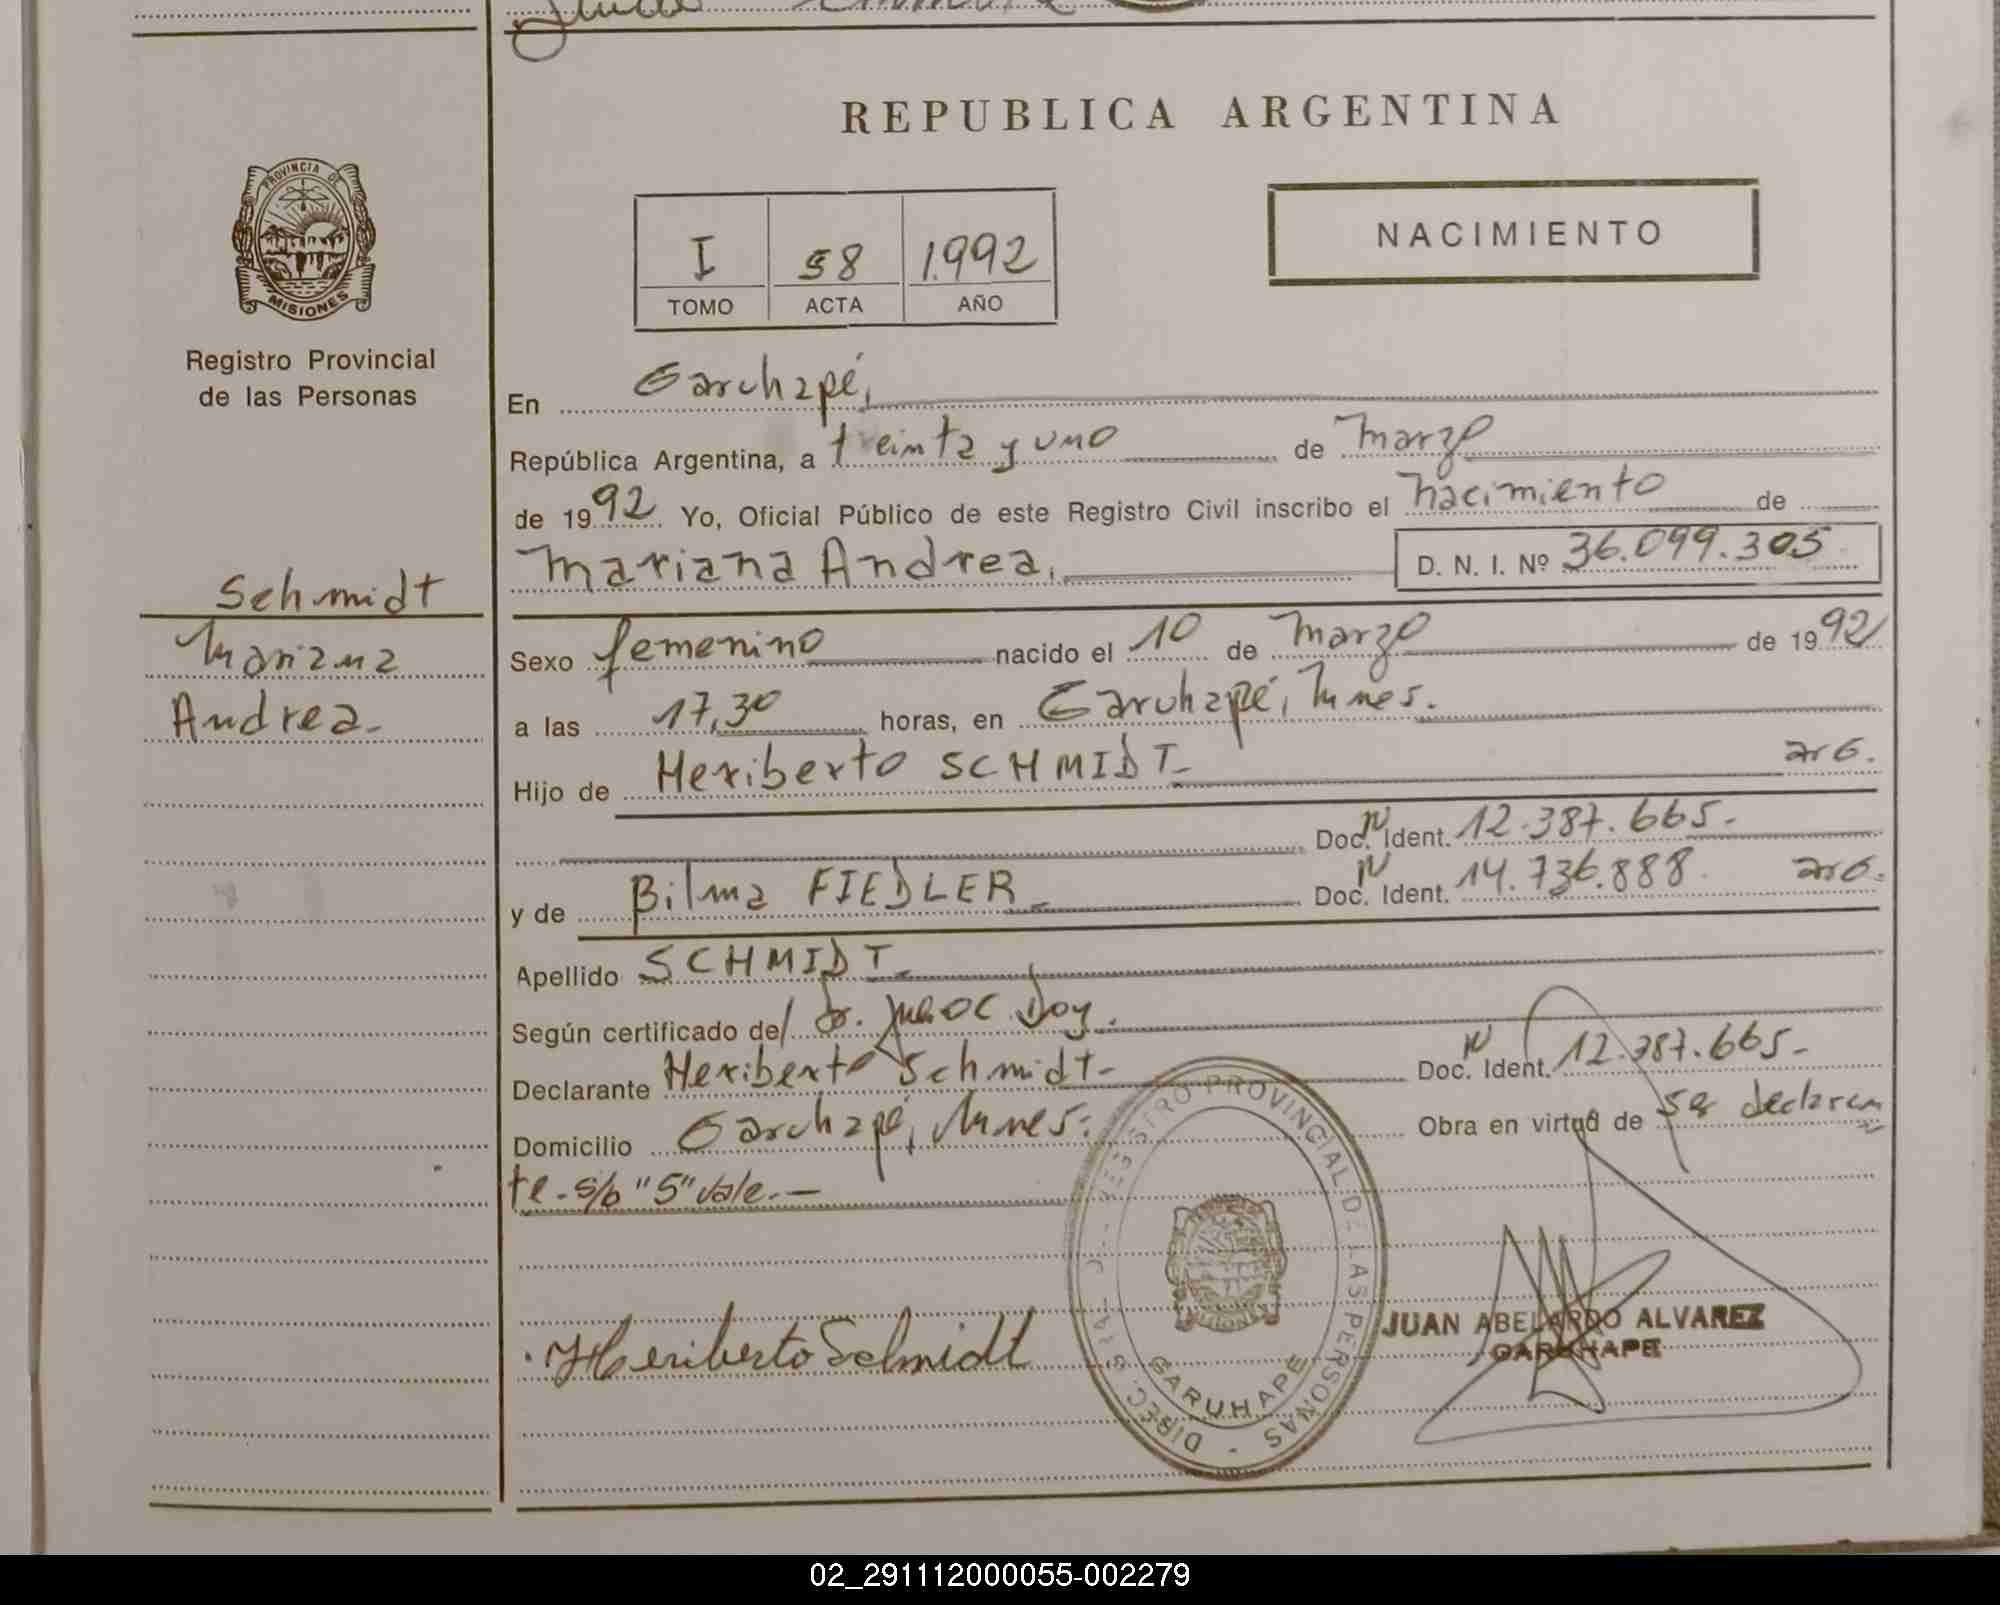 REPUBLICA ARGENTINA
PROVINCIA DE
MISIONES
Registro Provincial
de las Personas
I 58 1.992
TOMO ACTA AÑO
NACIMIENTO
En Garuhapé,
República Argentina, a treinta y uno de marzo
de 1992 Yo, Oficial Público de este Registro Civil inscribo el nacimiento de
Mariana Andrea, D. N. I. Nº 36.099.305
Schmidt
Mariana
Andrea-
Sexo femenino nacido el 10 de marzo de 1992
a las 17,30 horas, en Garuhapé, Mnes.
Hijo de Heriberto SCHMIDT- arG.
Doc. N Ident. 12.387.665-
y de Bilma FIEDLER- Doc. N Ident. 14.736.888 arG.
Apellido SCHMIDT-
Según certificado del Dr. Doy.
Declarante Heriberto Schmidt- Doc. N Ident. 12.387.665-
Domicilio Garuhapé, Mnes. Obra en virtud de ser declaran
te. s/b "S" vale.-
REGISTRO PROVINCIAL DE LAS PERSONAS - DIREC.
GARUHAPE
MISIONES
Heriberto Schmidt
JUAN ABELARDO ALVAREZ
GARUHAPE
02_291112000055-002279